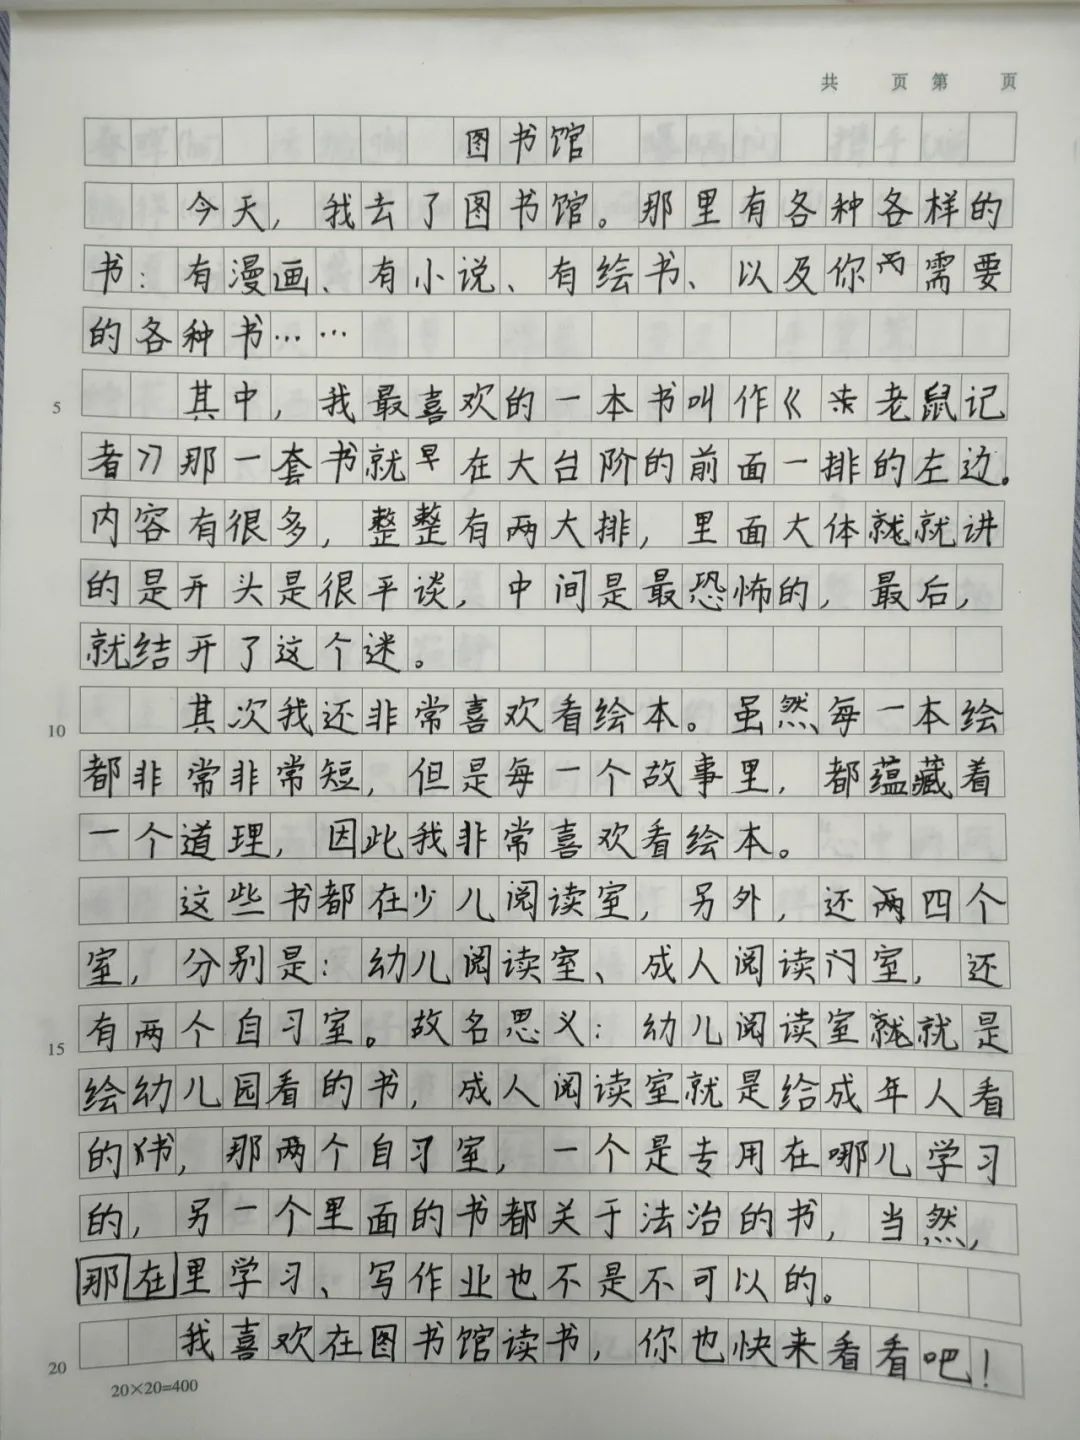 共 页 第 页
图书馆
今天，我去了图书馆。那里有各种各样的
书：有漫画、有小说、有绘书、以及你需要
的各种书……
5 其中，我最喜欢的一本书叫作《老鼠记
者》那一套书就早在大台阶的前面一排的左边。
内容有很多，整整有两大排，里面大体就就讲
的是开头是很平谈，中间是最恐怖的，最后，
就结开了这个迷。
10 其次我还非常喜欢看绘本。虽然每一本绘
都非常非常短，但是每一个故事里，都蕴藏着
一个道理，因此我非常喜欢看绘本。
这些书都在少儿阅读室，另外，还两四个
室，分别是：幼儿阅读室、成人阅读门室，还
15 有两个自习室。故名思义：幼儿阅读室就就是
绘幼儿园看的书，成人阅读室就是给成年人看
的书，那两个自习室，一个是专用在哪儿学习
的，另一个里面的书都关于法治的书，当然，
那在里学习、写作业也不是不可以的。
20 我喜欢在图书馆读书，你也快来看看吧！
20×20=400